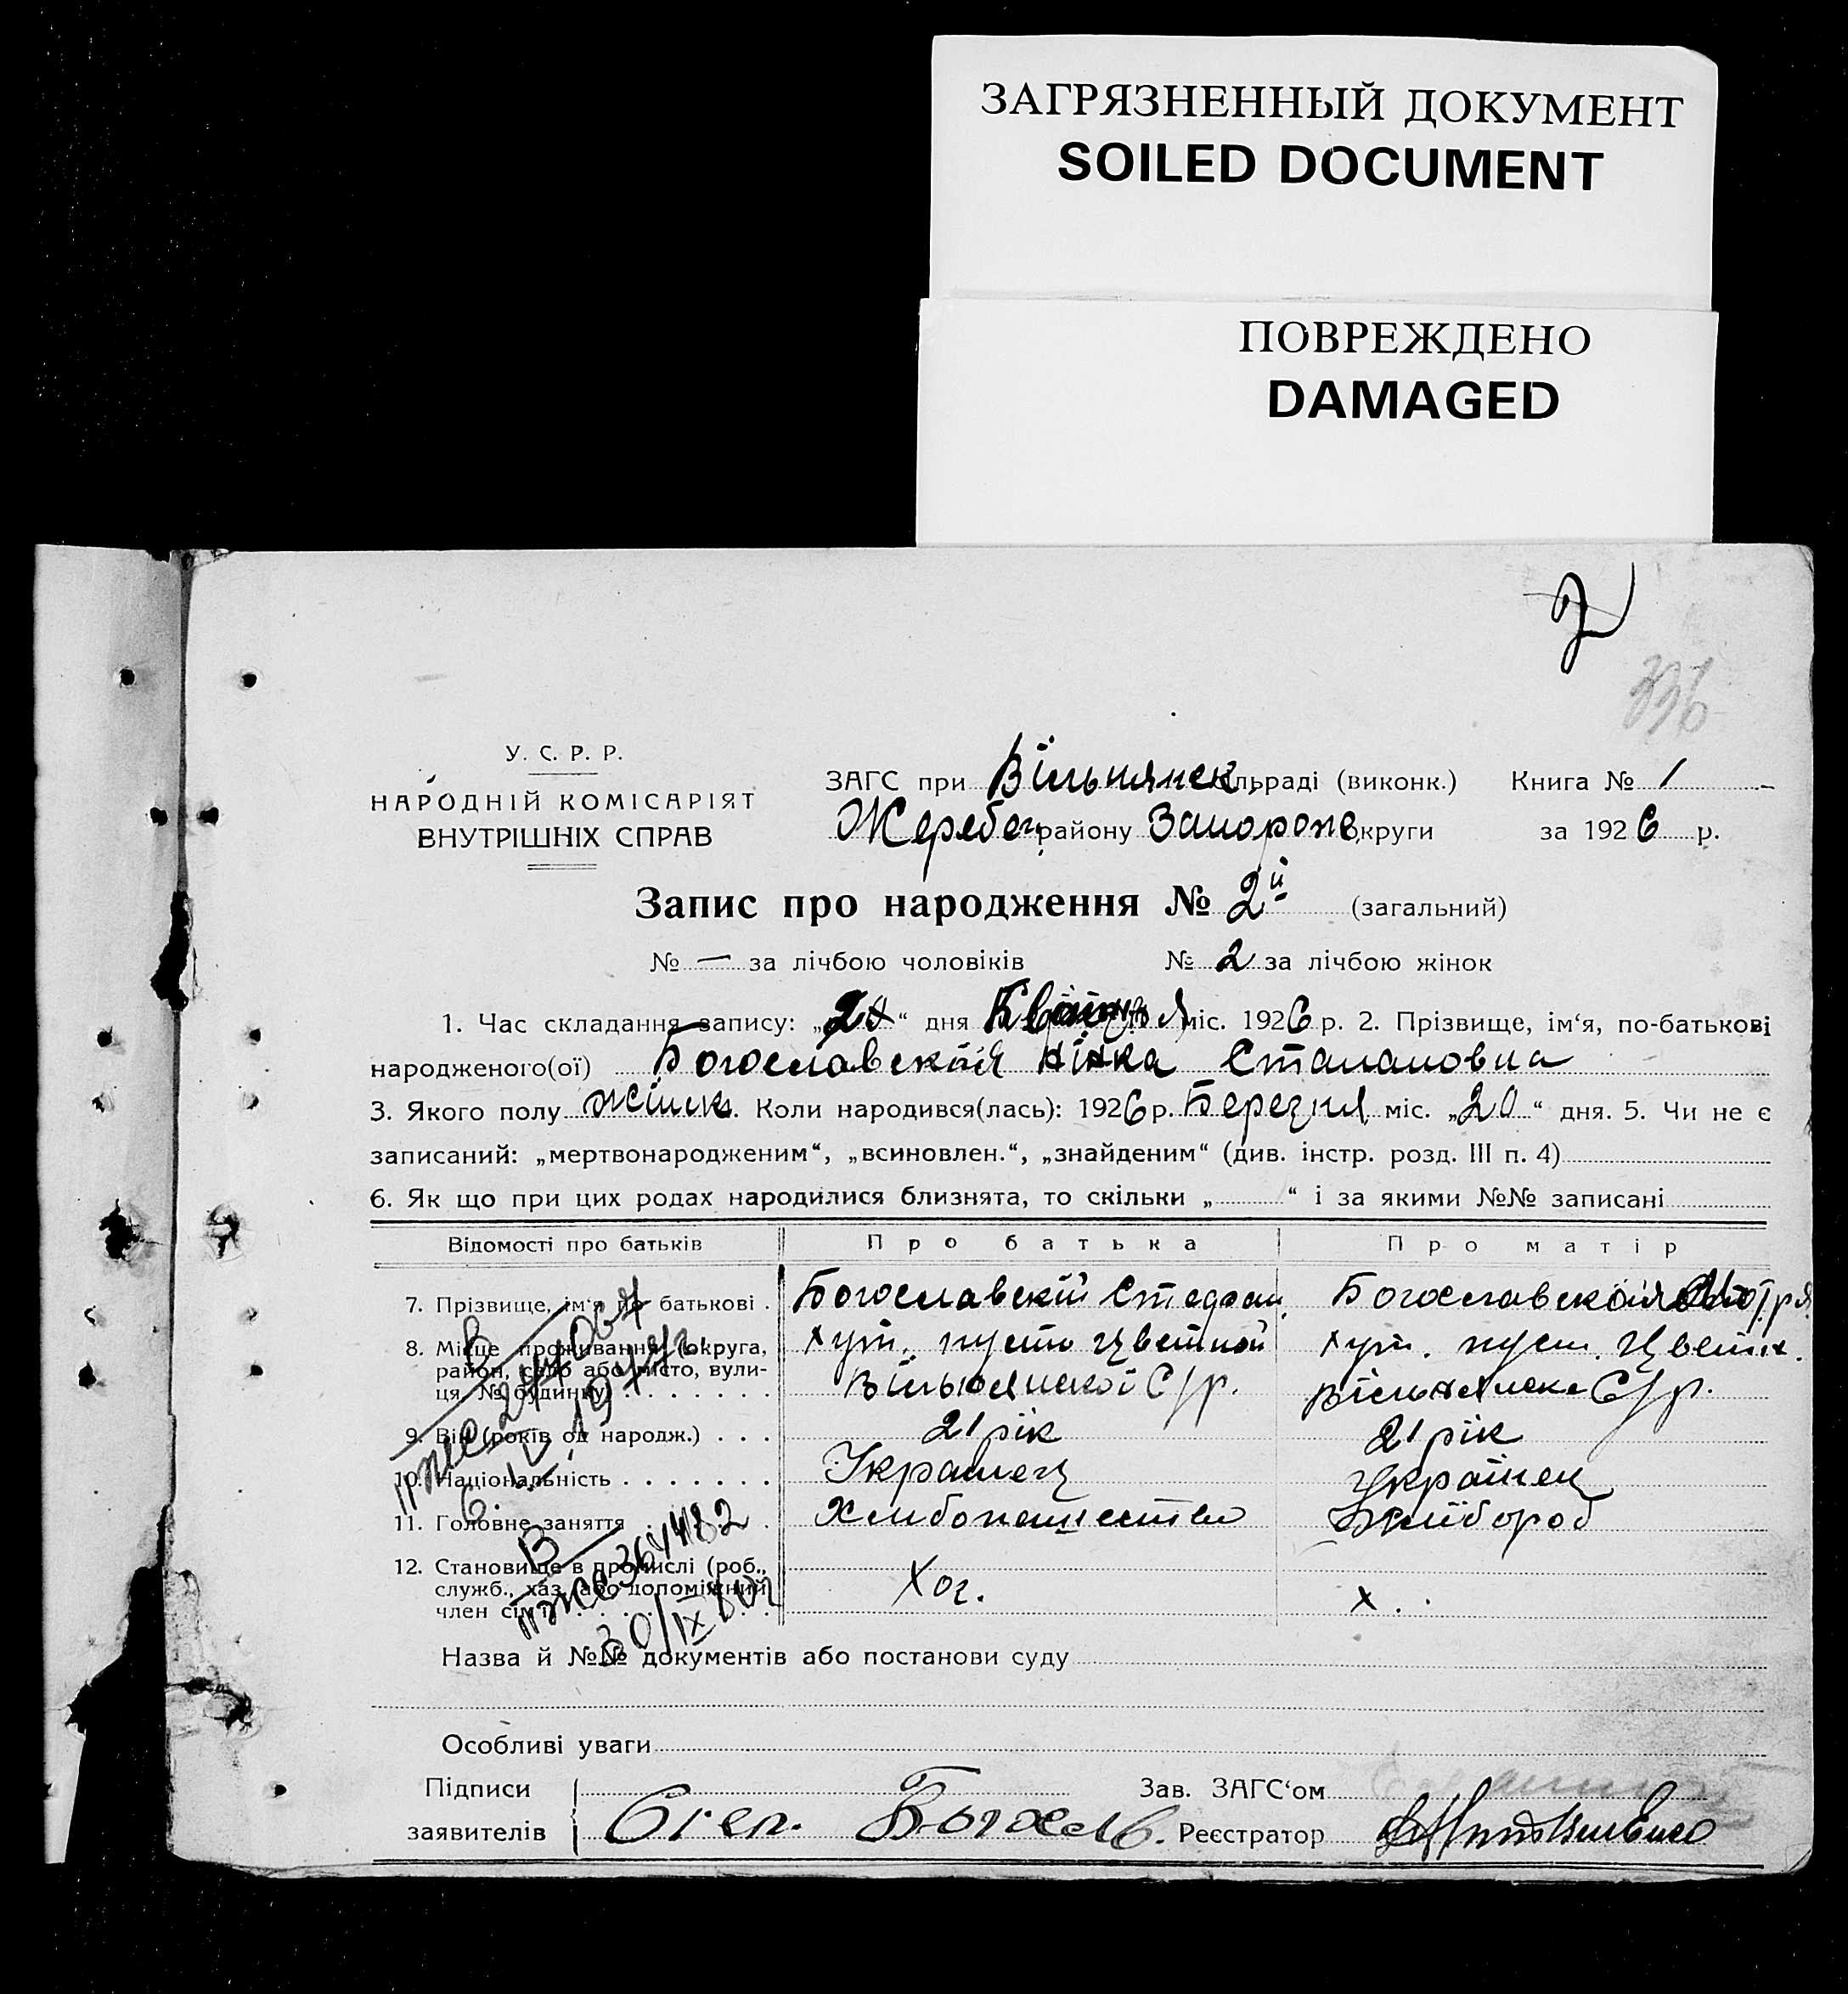 ЗАГРЯЗНЕННЫЙ ДОКУМЕНТ
SOILED DOCUMENT
ПОВРЕЖДЕНО
DAMAGED
2
336
У. С. Р. Р.
НАРОДНІЙ КОМІСАРІЯТ
ВНУТРІШНІХ СПРАВ
ЗАГС при Вільнянск. сільраді (виконк.) Книга № 1
Жеребец. району Запорож. округи за 1926 р.
Запис про народження № 2й (загальний)
№ — за лічбою чоловіків № 2 за лічбою жінок
1. Час складання запису: „ “ дня Квітня міс. 1926 р. 2. Прізвище, ім‘я, по-батькові
народженого(ої) Богославская Нінка
3. Якого полу жіньк. Коли народився(лась): 1926 р. Березня міс. „20“ дня. 5. Чи не є
записаний: „мертвонародженим“, „всиновлен.“, „знайденим“ (див. інстр. розд. III п. 4)
6. Як що при цих родах народилися близнята, то скільки „ “ і за якими №№ записані
Відомості про батьків Про батька Про матір
7. Прізвище, ім‘я по батькові . Богославскій Стефан Богославская Мотря
8. Місце проживання (округа, район, село або місто, вулиця, № будинку) хут. пусто Цветной Вільнянской С/р. хут. пуст. Цветн. Вільнянске С/р.
9. Вік (років од народж.) . . . 21 рік 21 рік
10. Національність . . . . . . . Украінец Украінец
11. Головне заняття
12. Становище в промислі (роб., служб., хаз. або допоміжний член сім‘ї) Хоз. х.
Назва й №№ документів або постанови суду
Особливі уваги
Підписи
заявителів Степ. Богосл. Зав. ЗАГС‘ом
Реєстратор